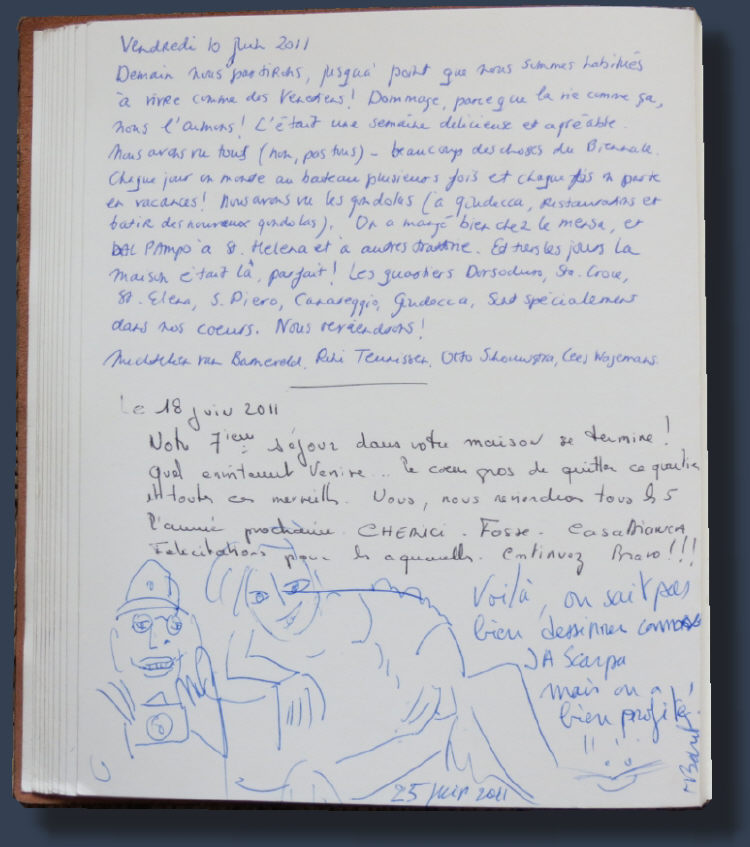 Vendredi 10 juin 2011
Demain nous partirons, jusqu'a point que nous sommes habitués
à vivre comme des Venetiens! Dommage, parceque la vie comme ça,
nous l'aimons! C'était une semaine delicieuse et agréable.
Nous avons vu tous (non, pas tous) - beaucoup des choses du Biennale.
Chaque jour on monte au bateau plusieurs fois et chaque fois on parte
en vacances! Nous avons vu les gondolas (a giudecca, restaurations et
batir des nouveaux gondolas). On a mangé bien chez le mensa, et
DAL PAmpo à St. Helena et à autres trattorie. Et tous les jours la
maison etait là, parfait! Les quartiers Dorsoduro, Sta. Croce,
St. Elena, S. Piero, Canareggio, Giudecca, sont spécialement
dans nos coeurs. Nous reviendrons!
van Barneveld, Riki Teunissen, Otto Cees Wagemans
Le 18 juin 2011
Notre 7ieme séjour dans votre maison se termine!
Quel Venise... le coeur gros de quitter ce quartier
et toutes ces merveilles. Nous, nous reviendrons tous les 5
l'année prochaine. CHERICI - Fosse - CasaBIANCA
Felicitations pour les aquarelles. Continuez Bravo!!!
Voilà, on sait pas
bien dessinner comme
JA Scarpa
mais on a
bien profité!
!!
25 juin 2011